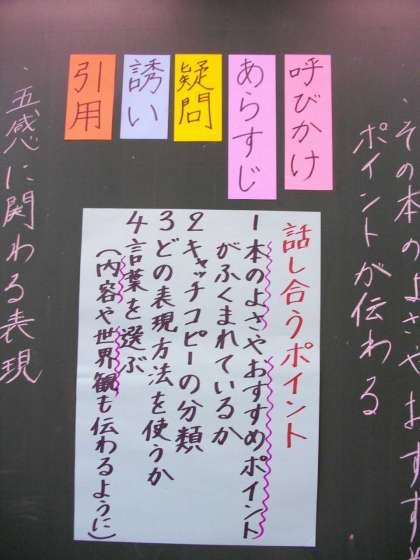 ・その本のよさやおすす
ポイントが伝わる
呼びかけ
あらすじ
疑問
誘い
引用
話し合うポイント
1本のよさやおすすめポイント
がふくまれているか
2キャッチコピーの分類
3どの表現方法を使うか
4言葉を選ぶ
(内容や世界観も伝わるように)
・五感に関わる表現